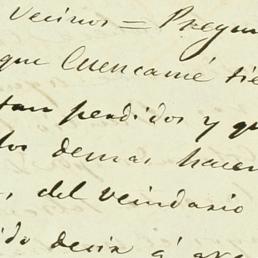 vecinos = Pregun
que Cuencamé tie
tan perdidos y qu
los demas hacen
, del vecindario
ido decir á